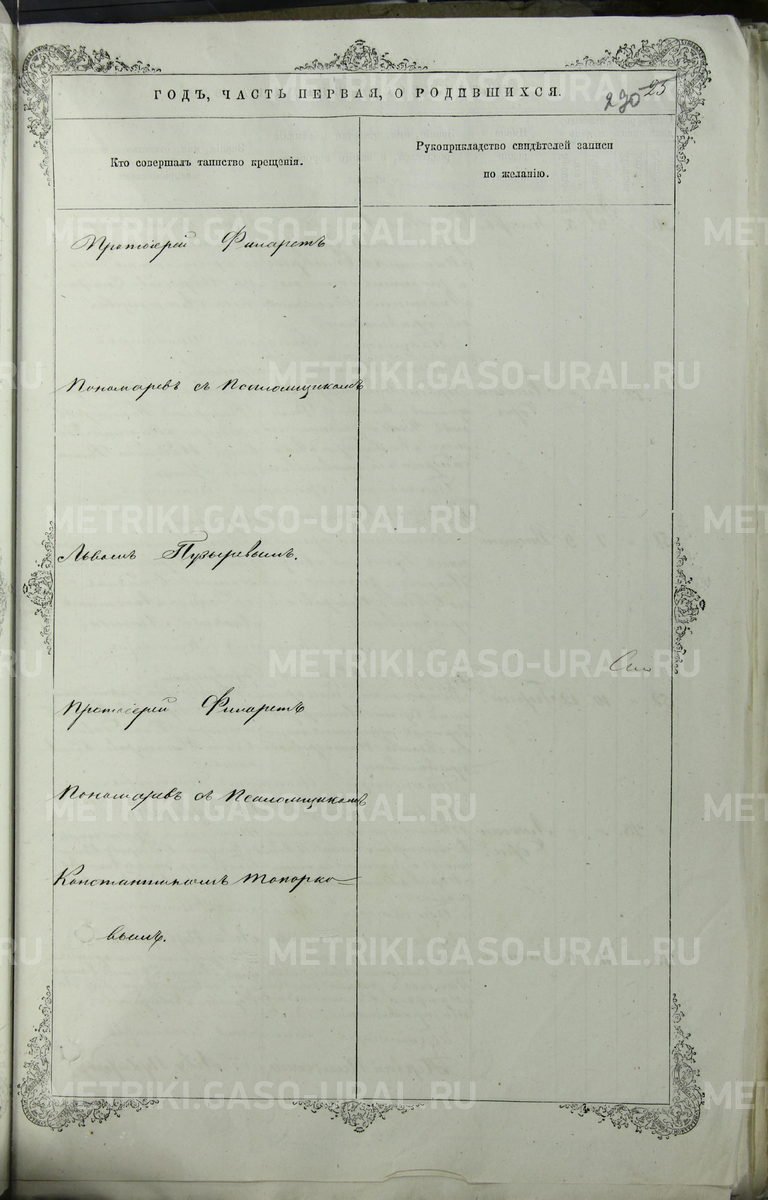 ГОДЪ, ЧАСТЬ ПЕРВАЯ, О РОДИВШИХСЯ.
230 25
Кто совершалъ таинство крещенія.
Рукоприкладство свидѣтелей записи
по желанію.
Протоіерей Филаретъ
Пономаревъ съ Псаломщикомъ
Львомъ Пузыревымъ.
Протоіерей Филаретъ
Пономаревъ съ Псаломщикомъ
Константиномъ Топорко-
вымъ.
METRIKI.GASO-URAL.RU